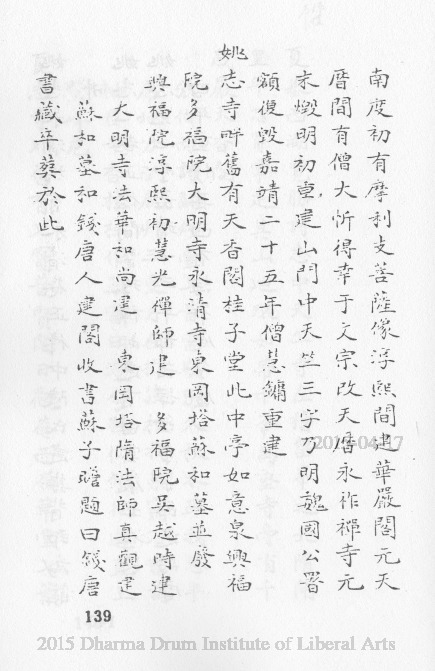 南度初有摩利支菩薩像淳熙間建華嚴閣元天
曆間有僧大忻得幸于文宗改天曆永祚禪寺元
末燬明初重建山門中天竺三字乃明魏國公署
額復毀嘉靖二十五年僧慧鏞重建
姚志寺畔舊有天香閣桂子堂此中亭如意泉興福
院多福院大明寺永清寺東岡塔蘇和墓並廢
興福院淳熙初慧光禪師建 多福院吳越時建
大明寺法華和尚建 東岡塔隋法師真觀建
蘇和墓和錢唐人建閣收書蘇子瞻題曰錢唐
書藏卒葬於此
139
2015-04-17
2015 Dharma Drum Institute of Liberal Arts